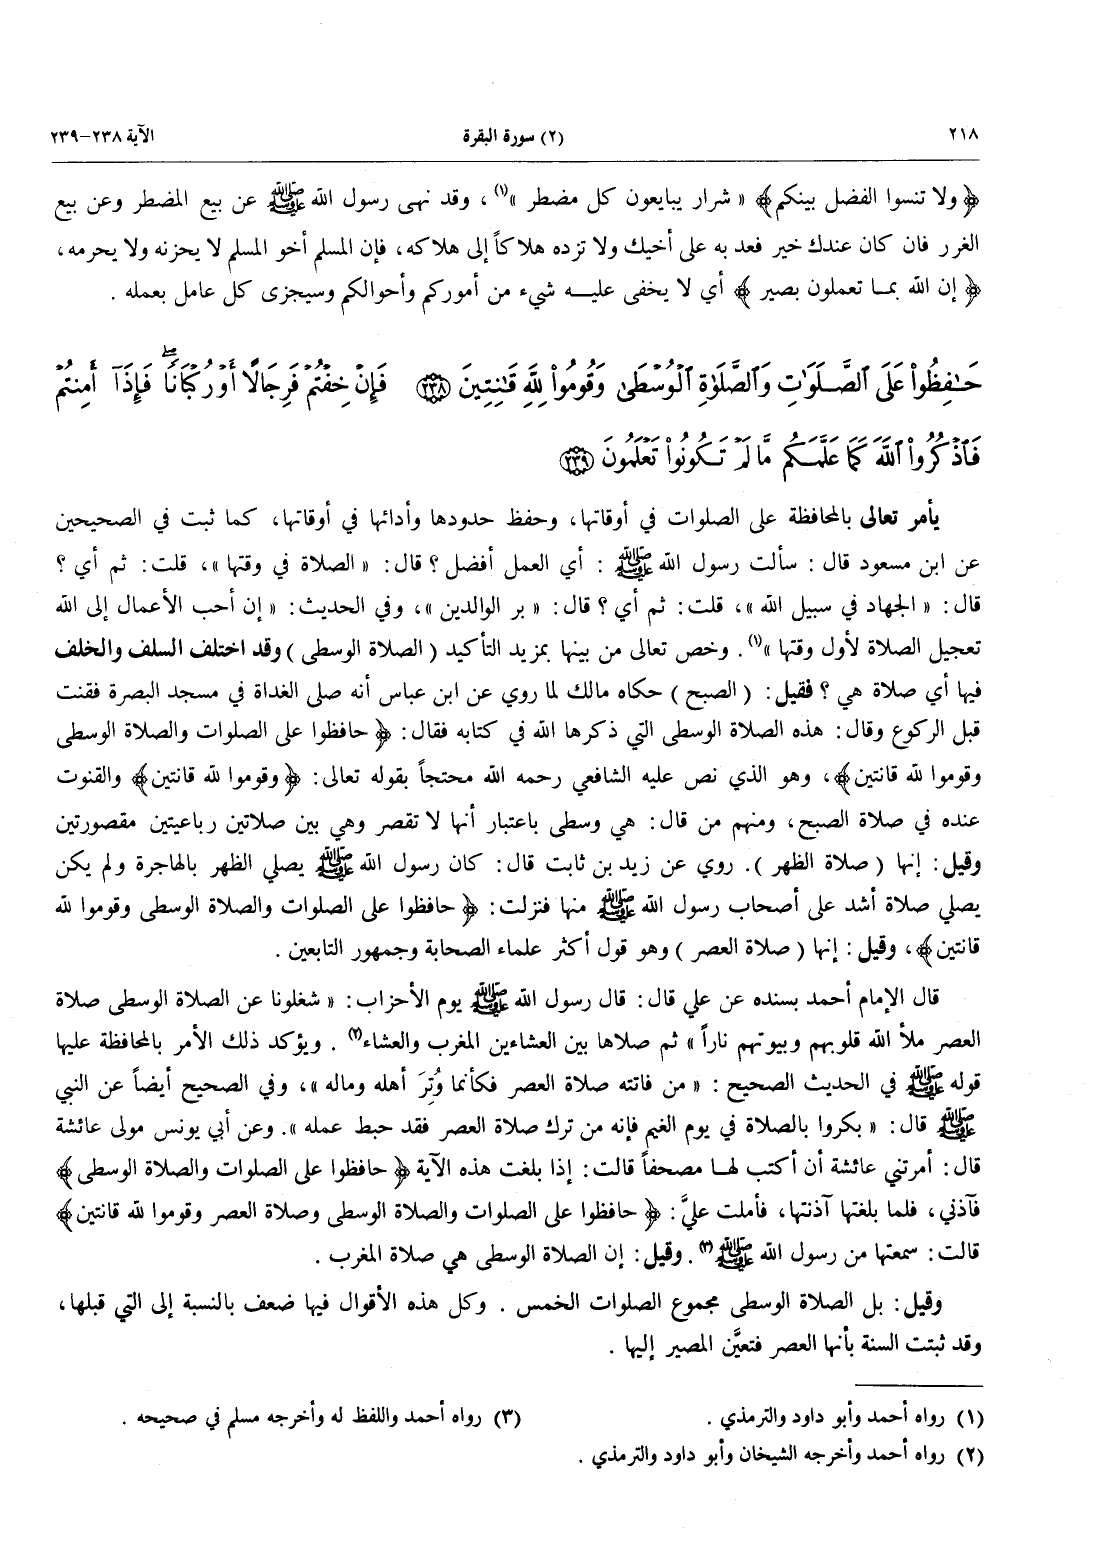 ٢١٨ (٢) سورة البقرة الآية ٢٣٨-٢٣٩
﴿ ولا تنسوا الفضل بينكم ﴾ « شرار يبايعون كل مضطر »(١) ، وقد نهى رسول الله ﷺ عن بيع المضطر وعن بيع
الغرر فان كان عندك خير فعد به على أخيك ولا تزده هلاكاً إلى هلاكه، فإن المسلم أخو المسلم لا يحزنه ولا يحرمه،
﴿ إن الله بما تعملون بصير ﴾ أي لا يخفى عليه شيء من أموركم وأحوالكم وسيجزى كل عامل بعمله .
حَـٰفِظُوا۟ عَلَى ٱلصَّلَوَٰتِ وَٱلصَّلَوٰةِ ٱلْوُسْطَىٰ وَقُومُوا۟ لِلَّهِ قَـٰنِتِينَ ﴿٢٣٨﴾ فَإِنْ خِفْتُمْ فَرِجَالًا أَوْ رُكْبَانًا ۖ فَإِذَآ أَمِنتُمْ
فَٱذْكُرُوا۟ ٱللَّهَ كَمَا عَلَّمَكُم مَّا لَمْ تَكُونُوا۟ تَعْلَمُونَ ﴿٢٣٩﴾
يأمر تعالى بالمحافظة على الصلوات في أوقاتها، وحفظ حدودها وأدائها في أوقاتها، كما ثبت في الصحيحين
عن ابن مسعود قال : سألت رسول الله ﷺ : أي العمل أفضل ؟ قال: « الصلاة في وقتها »، قلت: ثم أي ؟
قال: « الجهاد في سبيل الله »، قلت: ثم أي ؟ قال: « بر الوالدين »، وفي الحديث: « إن أحب الأعمال إلى الله
تعجيل الصلاة لأول وقتها »(١) . وخص تعالى من بينها بمزيد التأكيد ( الصلاة الوسطى ) وقد اختلف السلف والخلف
فيها أي صلاة هي ؟ فقيل: ( الصبح ) حكاه مالك لما روي عن ابن عباس أنه صلى الغداة في مسجد البصرة فقنت
قبل الركوع وقال: هذه الصلاة الوسطى التي ذكرها الله في كتابه فقال: ﴿ حافظوا على الصلوات والصلاة الوسطى
وقوموا لله قانتين ﴾، وهو الذي نص عليه الشافعي رحمه الله محتجاً بقوله تعالى: ﴿ وقوموا لله قانتين ﴾ والقنوت
عنده في صلاة الصبح، ومنهم من قال: هي وسطى باعتبار أنها لا تقصر وهي بين صلاتين رباعيتين مقصورتين
وقيل: إنها ( صلاة الظهر ). روي عن زيد بن ثابت قال: كان رسول الله ﷺ يصلي الظهر بالهاجرة ولم يكن
يصلي صلاة أشد على أصحاب رسول الله ﷺ منها فنزلت: ﴿ حافظوا على الصلوات والصلاة الوسطى وقوموا لله
قانتين ﴾، وقيل: إنها ( صلاة العصر ) وهو قول أكثر علماء الصحابة وجمهور التابعين .
قال الإمام أحمد بسنده عن علي قال: قال رسول الله ﷺ يوم الأحزاب: « شغلونا عن الصلاة الوسطى صلاة
العصر ملأ الله قلوبهم وبيوتهم ناراً » ثم صلاها بين العشاءين المغرب والعشاء(٢) . ويؤكد ذلك الأمر بالمحافظة عليها
قوله ﷺ في الحديث الصحيح : « من فاتته صلاة العصر فكأنما وُتِرَ أهله وماله »، وفي الصحيح أيضاً عن النبي
ﷺ قال: « بكروا بالصلاة في يوم الغيم فإنه من ترك صلاة العصر فقد حبط عمله ». وعن أبي يونس مولى عائشة
قال: أمرتني عائشة أن أكتب لها مصحفاً قالت: إذا بلغت هذه الآية ﴿ حافظوا على الصلوات والصلاة الوسطى ﴾
فآذني، فلما بلغتها آذنتها، فأملت عليَّ: ﴿ حافظوا على الصلوات والصلاة الوسطى وصلاة العصر وقوموا لله قانتين ﴾
قالت: سمعتها من رسول الله ﷺ(٣) . وقيل: إن الصلاة الوسطى هي صلاة المغرب .
وقيل: بل الصلاة الوسطى مجموع الصلوات الخمس . وكل هذه الأقوال فيها ضعف بالنسبة إلى التي قبلها،
وقد ثبتت السنة بأنها العصر فتعيَّن المصير إليها .
(١) رواه أحمد وأبو داود والترمذي .
(٢) رواه أحمد وأخرجه الشيخان وأبو داود والترمذي .
(٣) رواه أحمد واللفظ له وأخرجه مسلم في صحيحه .